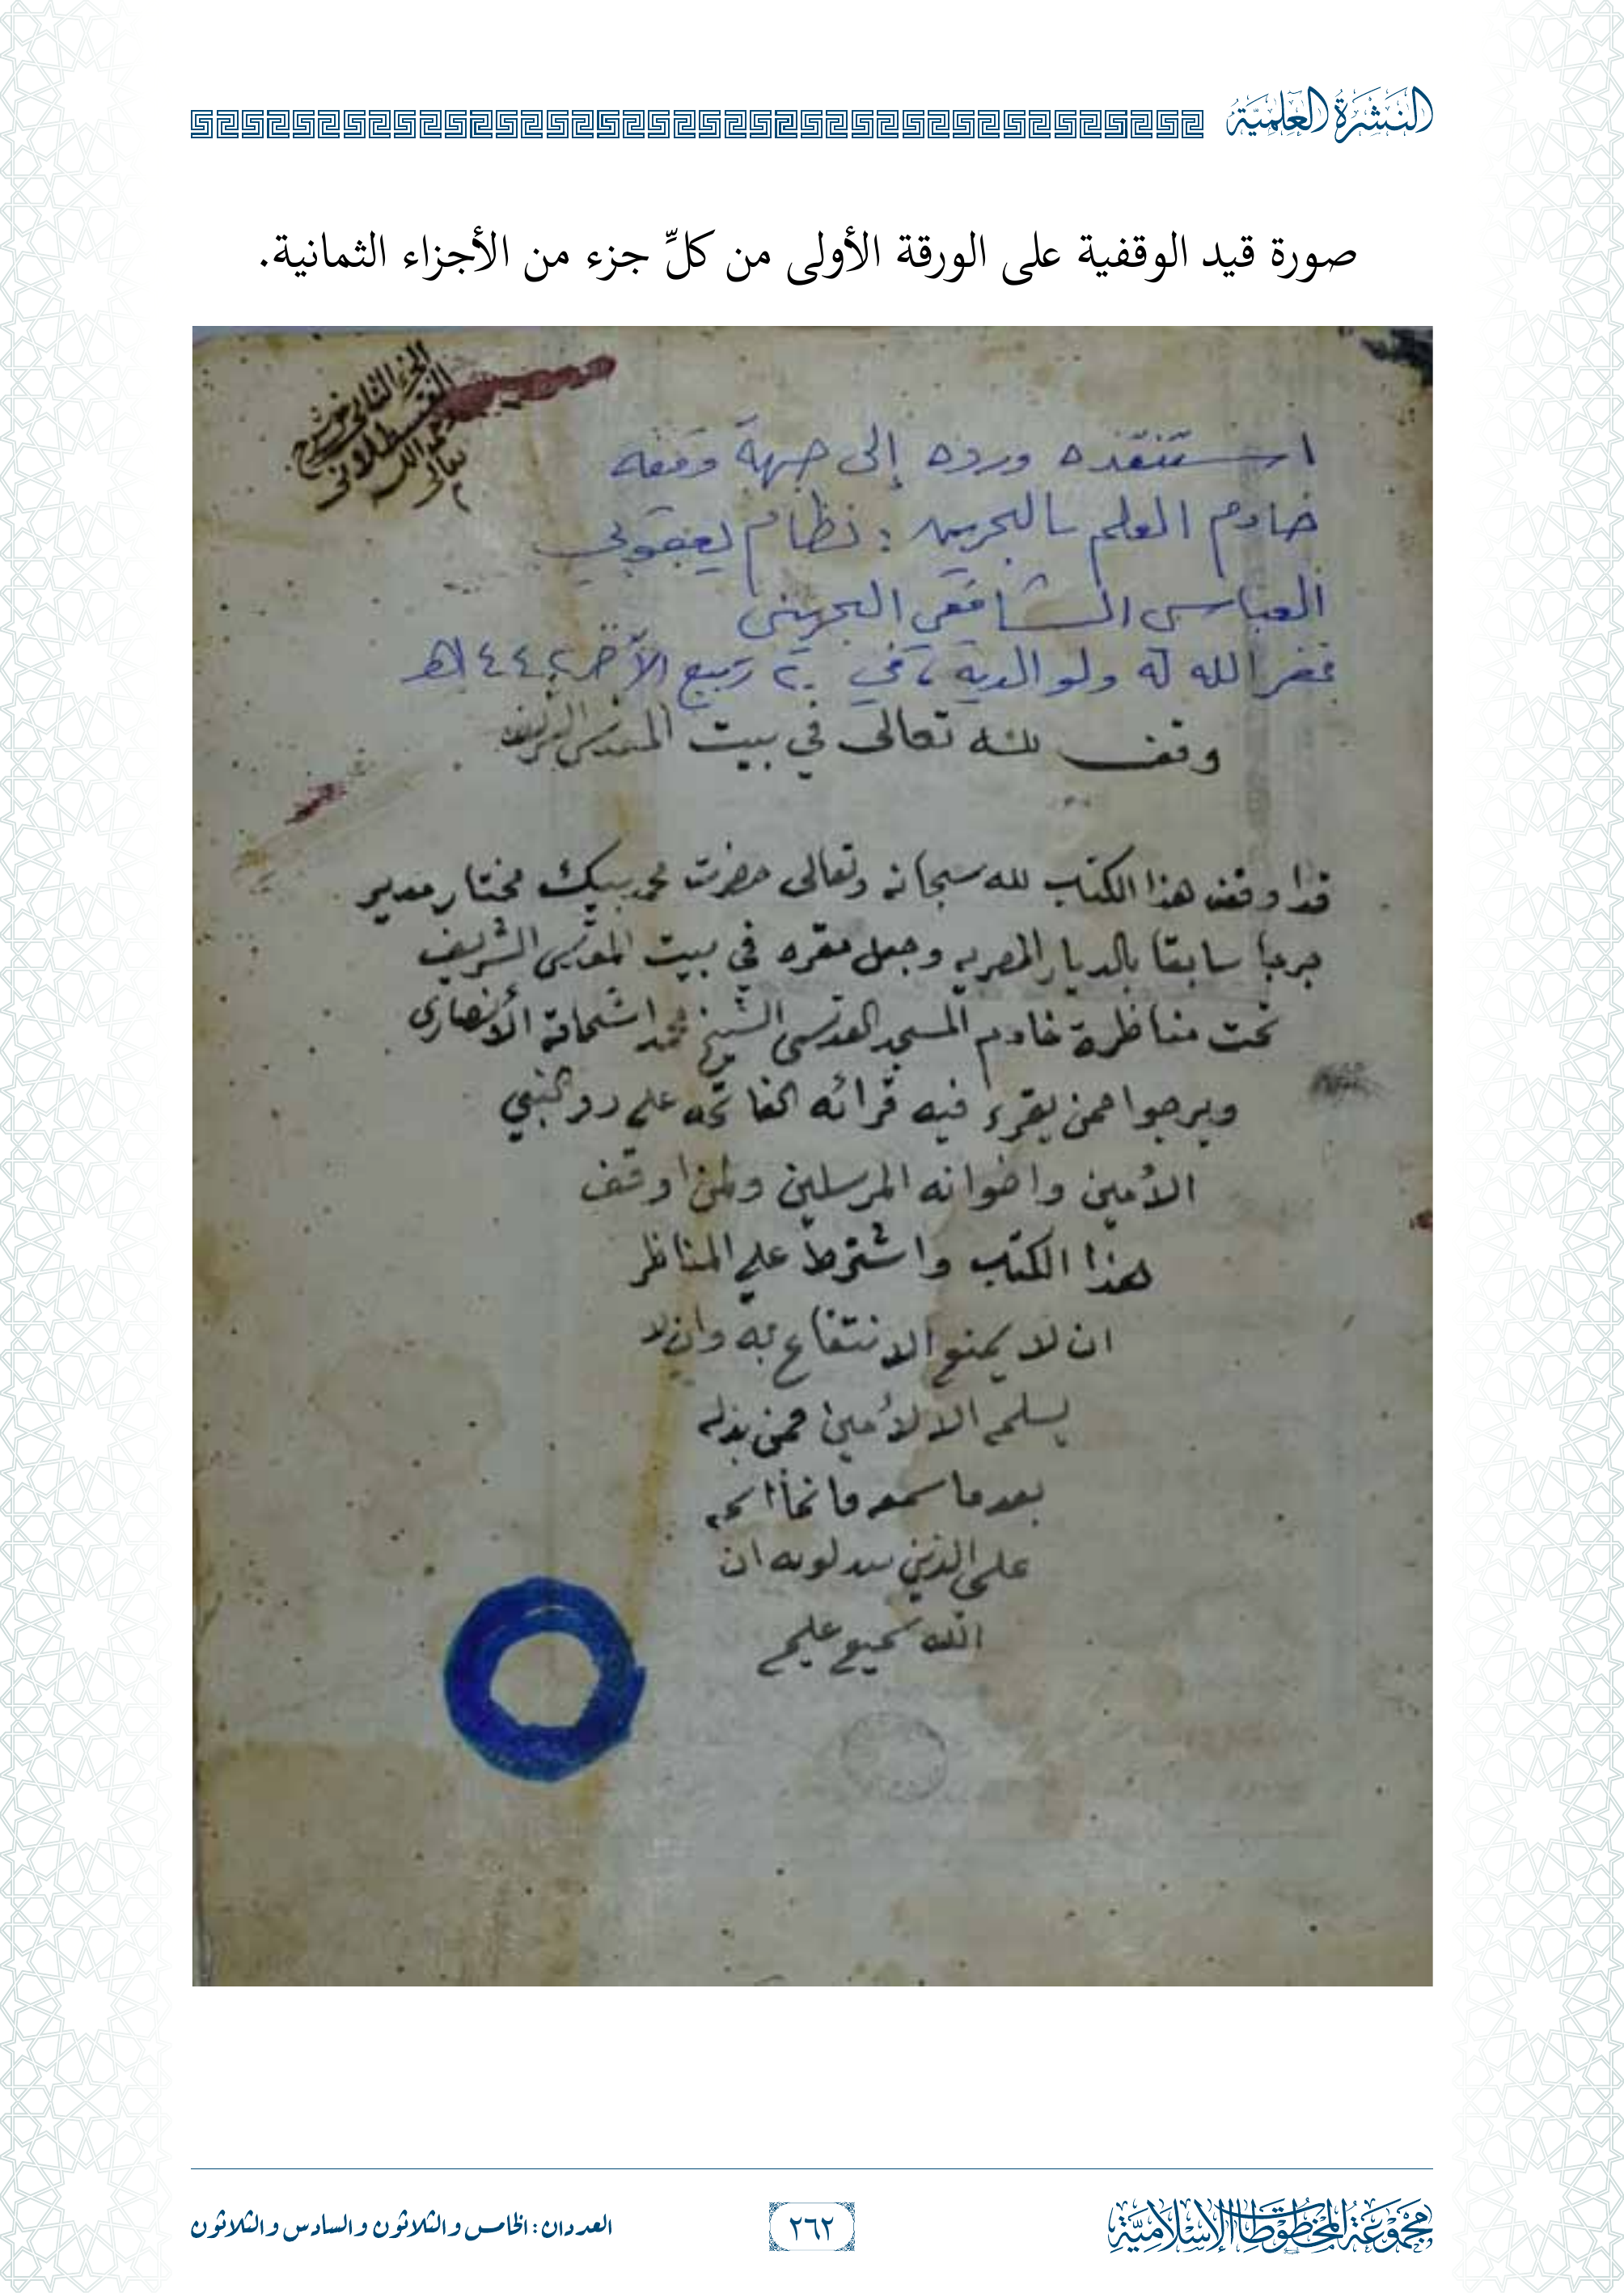 النشرة العلمية
صورة قيد الوقفية على الورقة الأولى من كلِّ جزء من الأجزاء الثمانية.
الجزء الثاني من شرح
القسطلاني
رحمه الله
تعالى
استنقذه ورده إلى جهة وقفه
خادم العلم بالبحرين: نظام يعقوبي
العباسي الشافعي البحريني
غفر الله له ولوالديه، في ٢٠ ربيع الآخر ١٤٤٢هـ
وقف لله تعالى في بيت المقدس الشريف
قد اوقف هذا الكتاب لله سبحانه وتعالى حضرت محمد بيك مختار مدير
جرجا سابقا بالديار المصريه وجعل مقره في بيت المقدس الشريف
تحت مناظرة خادم المسجد القدسي الشيخ محمد اشحاتة الأنصارى
ويرجوا ممن يقرء فيه قرائه الفاتحه على روح النبي
الأمين واخوانه المرسلين ولمن اوقف
هذا الكتاب واشترط على المناظر
ان لا يمنع الانتفاع به وان لا
يسلمه الا لأمين فمن بدله
بعد ما سمعه فانما اثمه
على الذين يبدلونه ان
الله سميع عليم
مجموعة المخطوطات الإسلامية
٢٦٢
العددان: الخامس والثلاثون والسادس والثلاثون